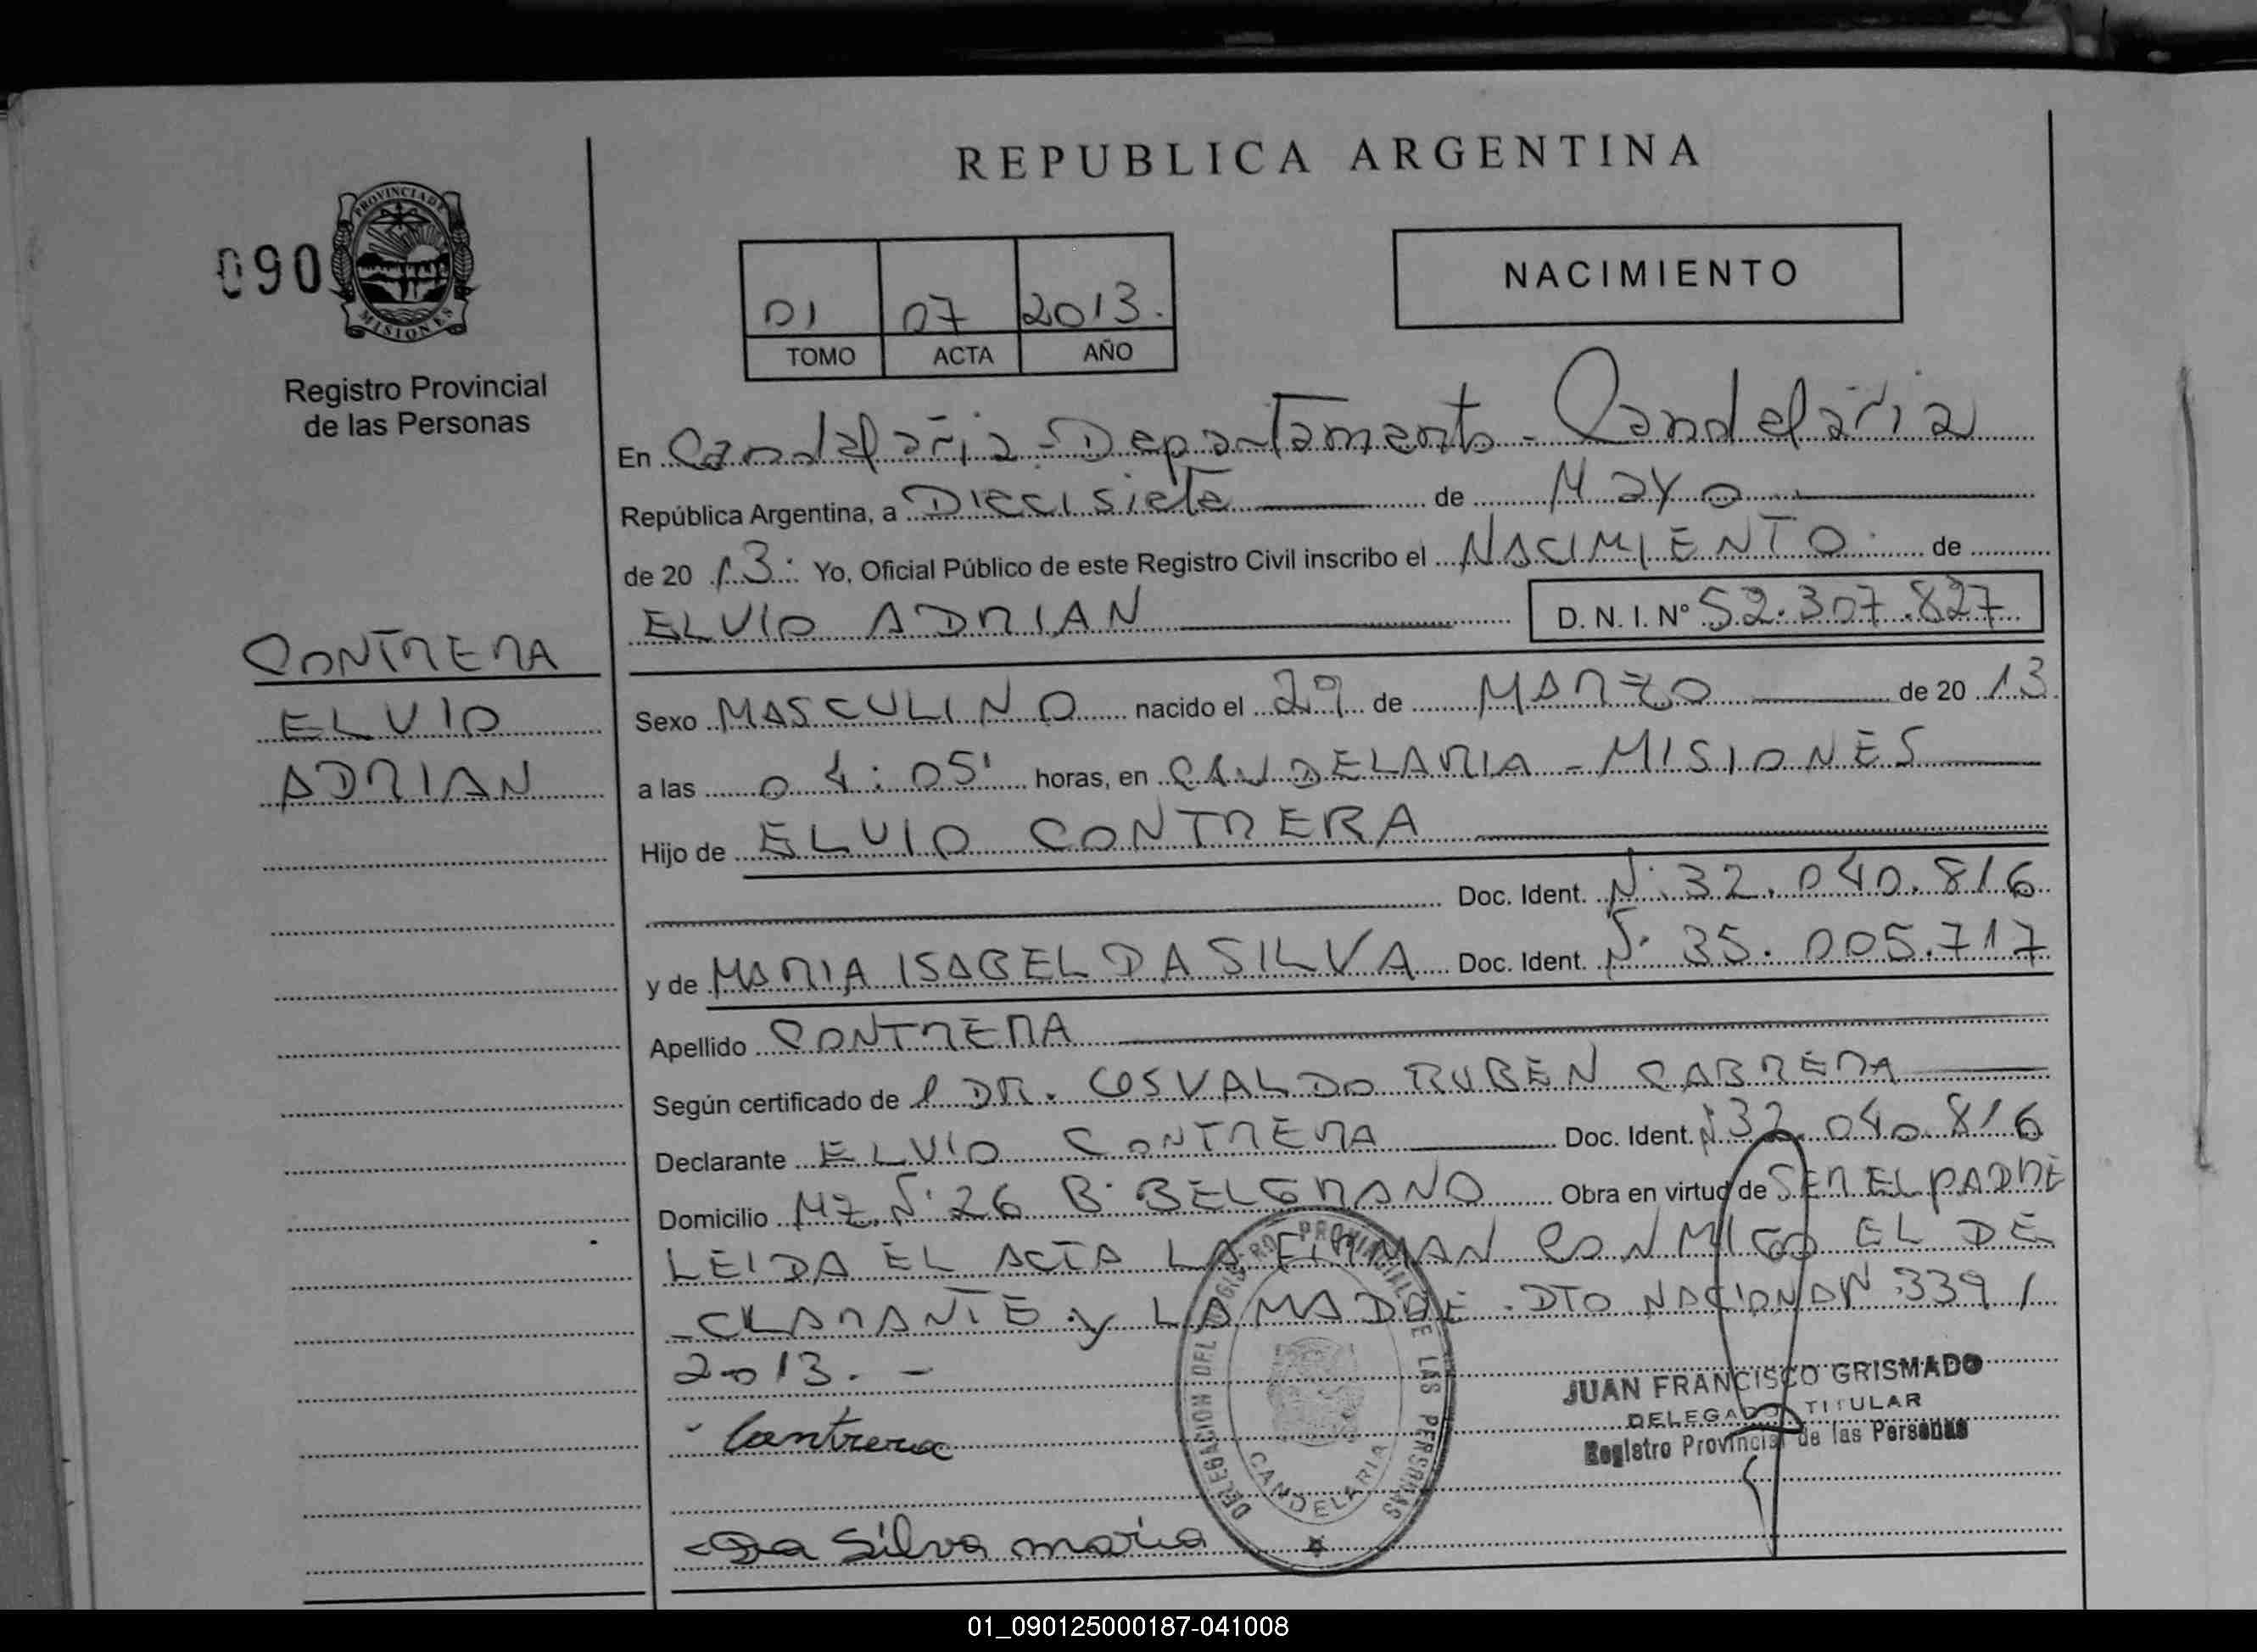 REPUBLICA ARGENTINA
090
PROVINCIA DE
MISIONES
Registro Provincial
de las Personas
01 07 2013.
TOMO ACTA AÑO
NACIMIENTO
En Candelaria - Departamento - Candelaria
República Argentina, a Diecisiete de Mayo
de 20 13. Yo, Oficial Público de este Registro Civil inscribo el NACIMIENTO de
ELVIO ADRIAN D. N. I. Nº 52.307.827
CONTRERA
ELVIO
ADRIAN
Sexo MASCULINO nacido el 29 de MARZO de 20 13.
a las 04:05' horas, en CANDELARIA - MISIONES
Hijo de ELVIO CONTRERA
Doc. Ident. Nº 32.040.816
y de MARIA ISABEL DA SILVA Doc. Ident. Nº 35.005.717
Apellido CONTRERA
Según certificado de l DR. OSVALDO RUBEN CABRERA
Declarante ELVIO CONTRERA Doc. Ident. Nº 32.040.816
Domicilio MZ. Nº 26 Bº BELGRANO Obra en virtud de SER EL PADRE
LEIDA EL ACTA LA FIRMAN CONMIGO EL DE
-CLARANTE Y LA MADRE. DTO NACIONAL Nº 339/
2013. -
Contrera
JUAN FRANCISCO GRISMADO
DELEGADO TITULAR
Registro Provincial de las Personas
Da Silva maria
DELEGACION DEL REGISTRO PROVINCIAL DE LAS PERSONAS
CANDELARIA
01_090125000187-041008